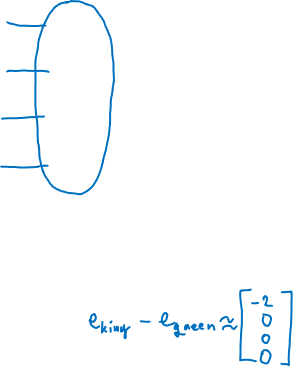 e_king - e_queen ≈ [-2
0
0
0]